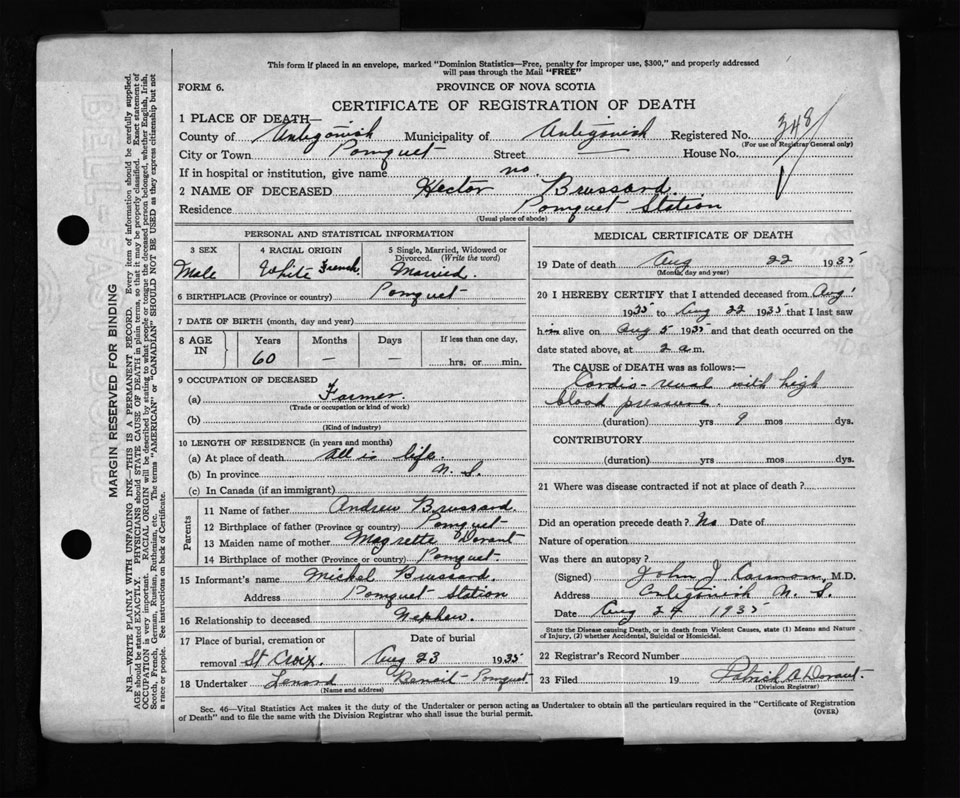 This form if placed in an envelope, marked "Dominion Statistics—Free, penalty for improper use, $300," and properly addressed
will pass through the Mail "FREE"
FORM 6.
PROVINCE OF NOVA SCOTIA
CERTIFICATE OF REGISTRATION OF DEATH
1 PLACE OF DEATH—
County of Antigonish Municipality of Antigonish Registered No. 348
(For use of Registrar General only)
City or Town Pomquet Street — House No.
If in hospital or institution, give name no.
2 NAME OF DECEASED Hector Brussard.
Residence Pomquet Station
(Usual place of abode)
PERSONAL AND STATISTICAL INFORMATION
3 SEX 4 RACIAL ORIGIN 5 Single, Married, Widowed or Divorced. (Write the word)
Male White French Married.
6 BIRTHPLACE (Province or country) Pomquet
7 DATE OF BIRTH (month, day and year)
8 AGE IN Years Months Days If less than one day,
60 — — hrs. or min.
9 OCCUPATION OF DECEASED
(a) Farmer.
(Trade or occupation or kind of work)
(b)
(Kind of industry)
10 LENGTH OF RESIDENCE (in years and months)
(a) At place of death all is life.
(b) In province N. S.
(c) In Canada (if an immigrant)
Parents
11 Name of father Andrew Brussard
12 Birthplace of father (Province or country) Pomquet
13 Maiden name of mother Magrette Dorant
14 Birthplace of mother (Province or country) Pomquet.
15 Informant's name Michel Brussard.
Address Pomquet Station
16 Relationship to deceased Nephew.
17 Place of burial, cremation or Date of burial
removal St Croix. Aug 23 1935
18 Undertaker Lenard Benoit - Pomquet
(Name and address)
MEDICAL CERTIFICATE OF DEATH
19 Date of death Aug 22 1935
(Month, day and year)
20 I HEREBY CERTIFY that I attended deceased from Aug 1
1935 to Aug 22 1935 that I last saw
him alive on Aug 5 1935 and that death occurred on the
date stated above, at 2 a m.
The CAUSE of DEATH was as follows:—
Cardio-renal with high
blood pressure.
(duration) yrs 9 mos dys.
CONTRIBUTORY
(duration) yrs mos dys.
21 Where was disease contracted if not at place of death?
Did an operation precede death? No Date of
Nature of operation
Was there an autopsy?
(Signed) John J. M.D.
Address Antigonish N. S.
Date Aug 24 1935
State the Disease causing Death, or in death from Violent Causes, state (1) Means and Nature
of Injury, (2) whether Accidental, Suicidal or Homicidal.
22 Registrar's Record Number
23 Filed 19 Patrick A Dorant.
(Division Registrar)
Sec. 46—Vital Statistics Act makes it the duty of the Undertaker or person acting as Undertaker to obtain all the particulars required in the "Certificate of Registration
of Death" and to file the same with the Division Registrar who shall issue the burial permit.
(OVER)
MARGIN RESERVED FOR BINDING
N.B.—WRITE PLAINLY WITH UNFADING INK—THIS IS A PERMANENT RECORD. Every item of information should be carefully supplied.
AGE should be stated EXACTLY. PHYSICIANS should STATE CAUSE OF DEATH in plain terms, so that it may be properly classified. Exact statement of
OCCUPATION is very important. RACIAL ORIGIN will be described by stating to what people or tongue the deceased person belonged, whether English, Irish,
Scotch, French, German, Russian, Ruthenian, etc. The terms "AMERICAN" or "CANADIAN" SHOULD NOT BE USED as they express citizenship but not
a race or people. See instructions on back of Certificate.